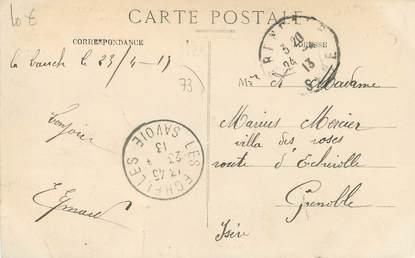 10 €
CARTE POSTALE
CORRESPONDANCE
ADRESSE
3 20
24
13
le 23/4-13
73
Mr et Madame
Bonjour
Marius Mercier
villa des roses
route d'Echirolle
Grenoble
Isère
LES ECHELLES
SAVOIE
17 45
23 - 4
13